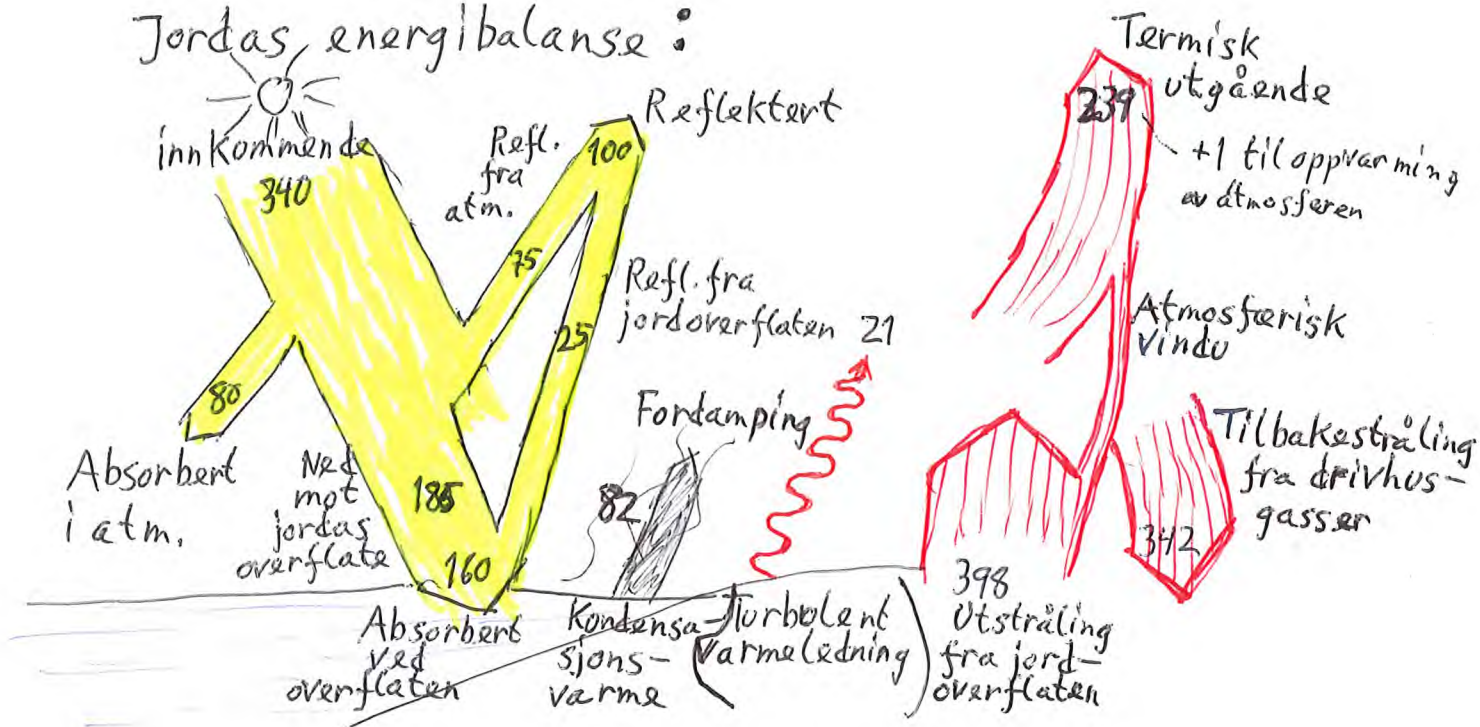 Jordas energibalanse:
innkommende
340
Refl.
fra
atm.
Reflektert
100
75
Refl. fra
jordoverflaten
25
80
Absorbert
i atm.
Ned
mot
jordas
overflate
185
160
Absorbert
ved
overflaten
Fordamping
82
Kondensa-
sjons-
varme
21
(Turbolent
varmeledning)
Termisk
utgående
239
+1 til oppvarming
av atmosfæren
Atmosfærisk
vindu
Tilbakestråling
fra drivhus-
gasser
342
398
Utstråling
fra jord-
overflaten